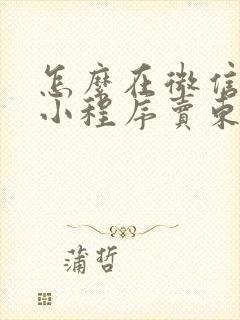 怎麼在微信
小程序賣東
蒲哲